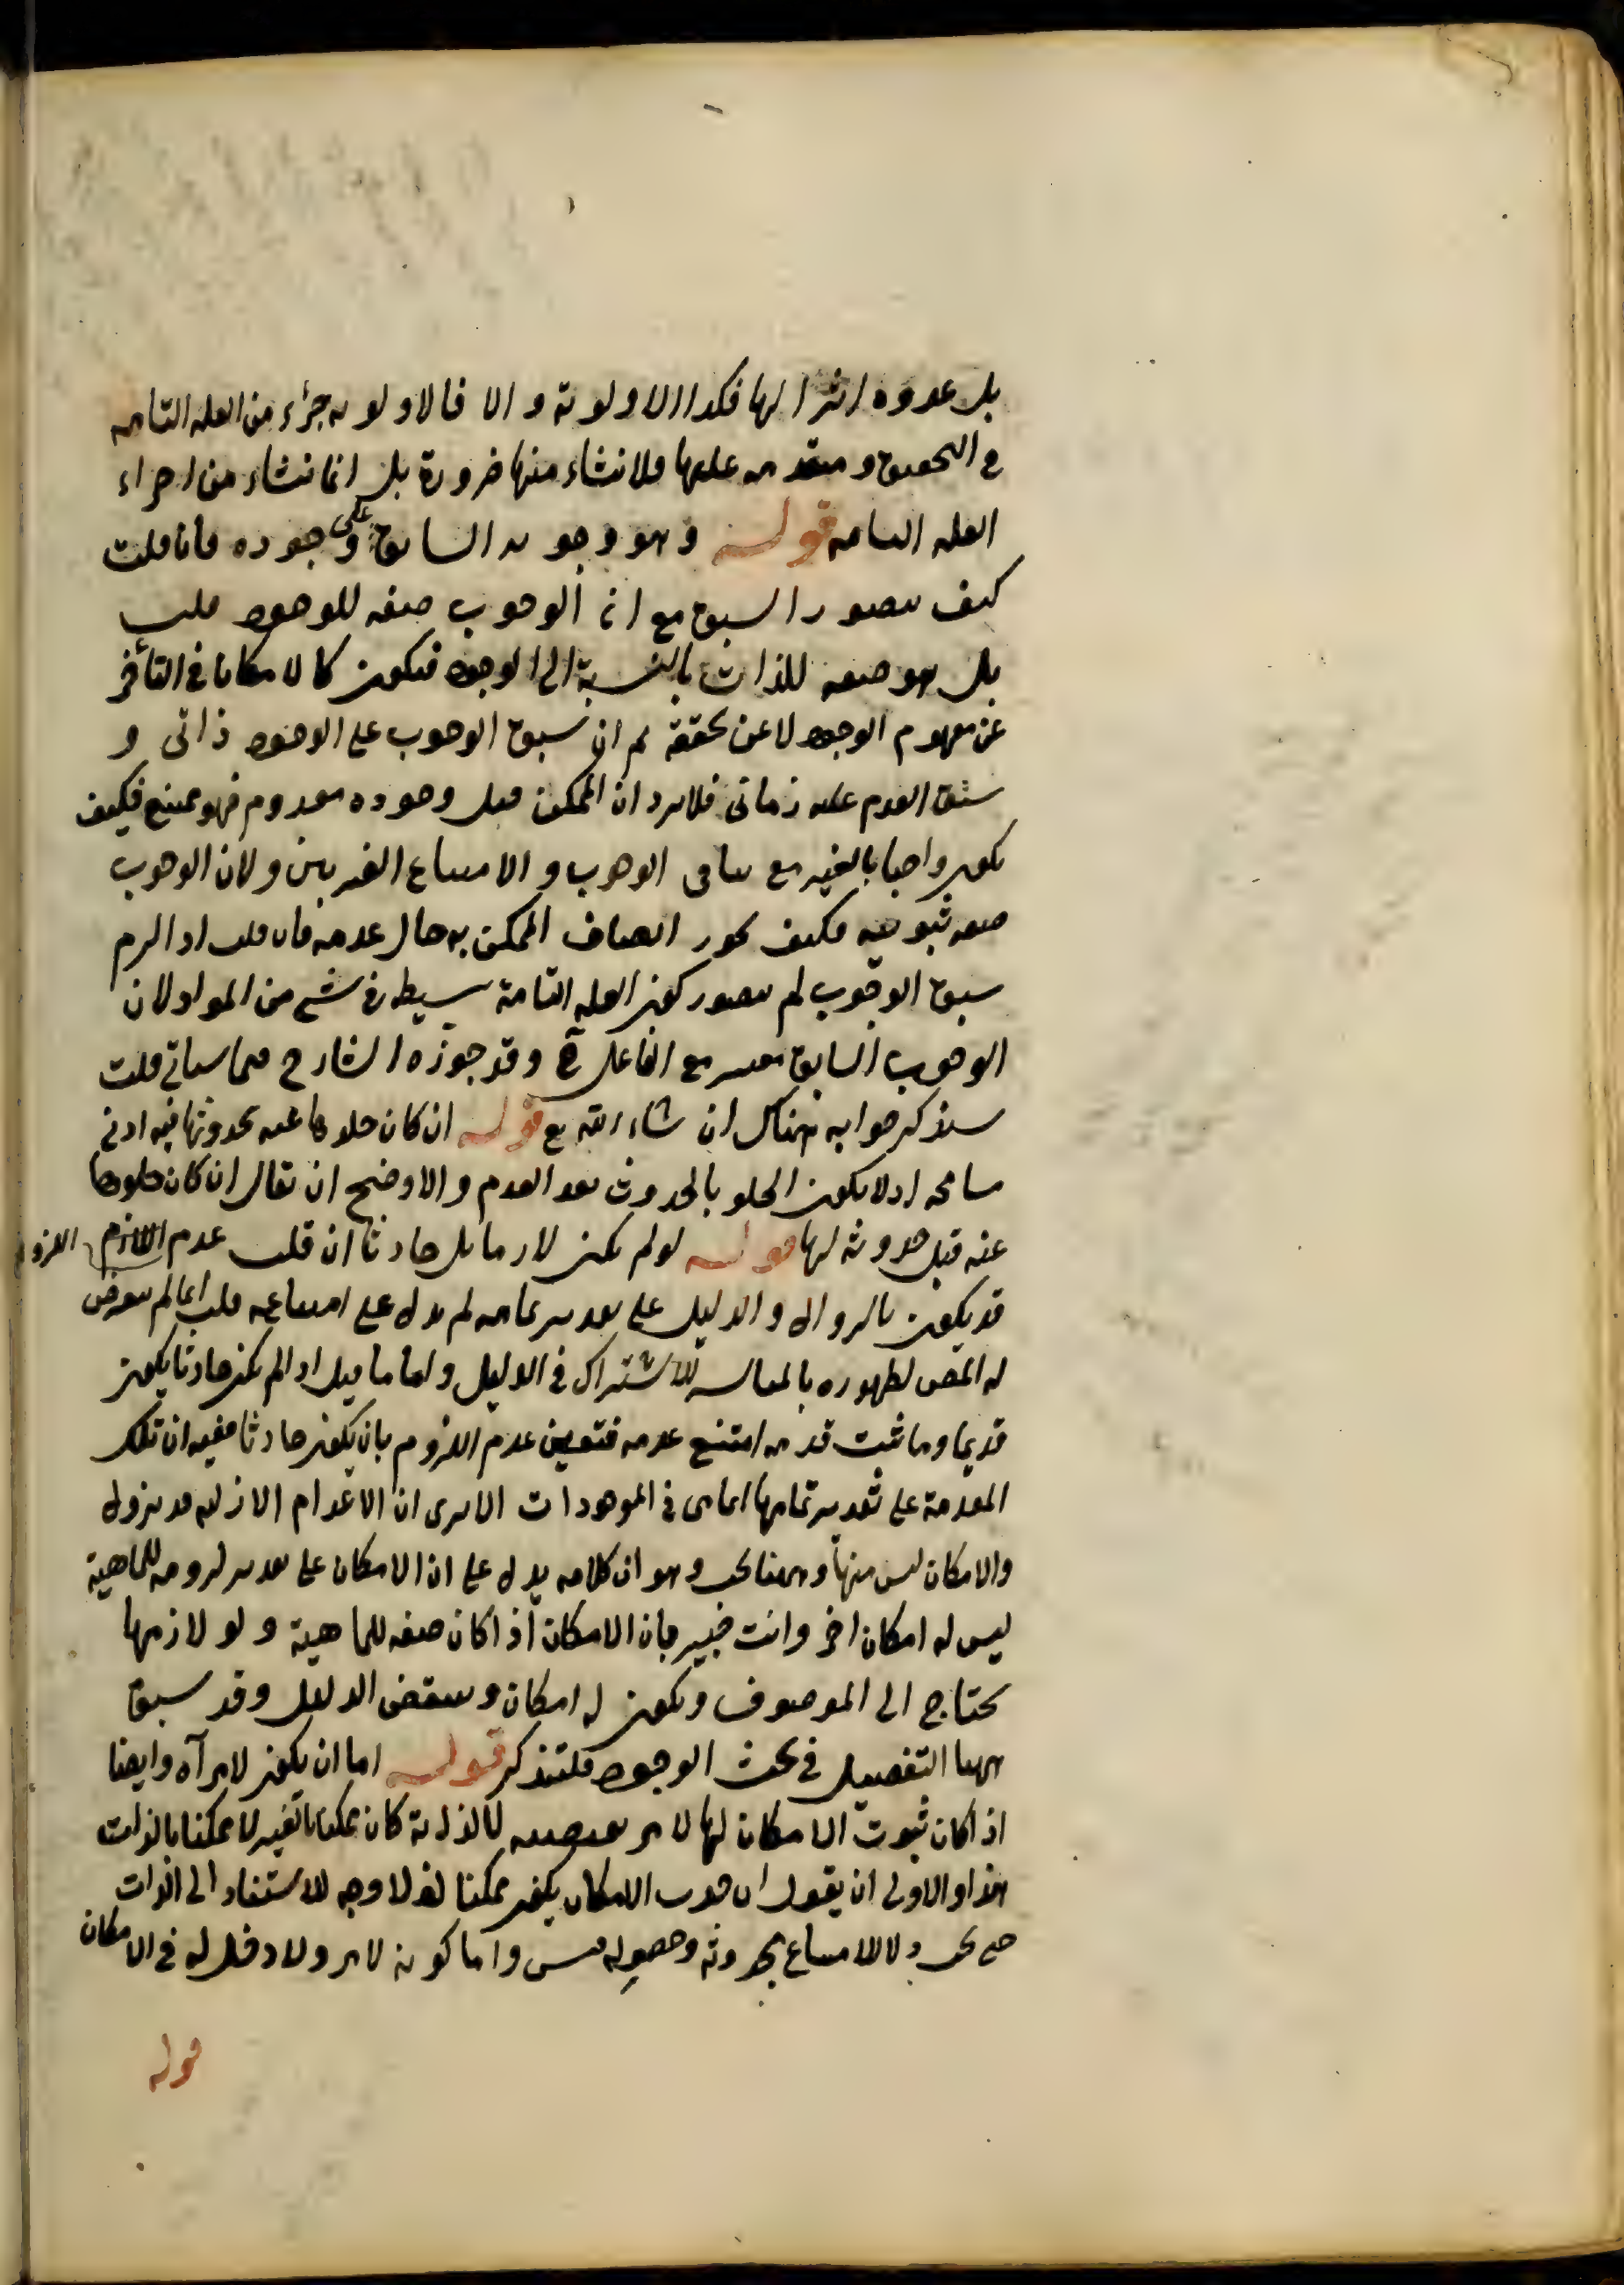 بل عدوه اثرا لها فكذا الاولوية والا فالاولوية جزء من العلة التامة
في التحقيق ومتقدمة عليها فلا تنشاء منها ضرورة بل انما تنشاء من اجزاء
العلة التامة قوله وهو وجوبه السابق على وجوده فان قلت
كيف يتصور السبق مع ان الوجوب صفة للوجود قلت
بل هو صفة للذات بالنسبة الى الوجود فيكون كالامكان في التأخر
عن مفهوم الوجود لا عن تحققه ثم ان سبق الوجوب على الوجود ذاتى و
سبق العدم عليه زمانى فلا يرد ان الممكن قبل وجوده معدوم فهو ممتنع فكيف
يكون واجبا بالغير مع تنافى الوجوب والامتناع الغيريين ولان الوجوب
صفة ثبوتية فكيف يجوز اتصاف الممكن به حال عدمه فان قلت اذا لزم
سبق الوجوب لم يتصور كون العلة التامة بسيطة في شىء من المواد لان
الوجوب السابق معتبر مع الفاعل ح وقد جوزه الشارح فيما سيأتى قلت
سنذكر جوابه هناك ان شاء الله تع قوله ان كان خلوها عنه بحدوثها فيه ادنى
مسامحة اذ لا يكون الخلو بالحدوث بعد العدم والاوضح ان يقال ان كان خلوها
عنه قبل حدوثه لها قوله لو لم يكن لازما بل حادثا ان قلت عدم اللزوم
قد يكون بالزوال والدليل على تقدير تمامه لم يدل على امتناعه قلت انما لم يتعرض
له المص لظهوره بالمقايسة للاشتراك في الدليل واما ما قيل اذا لم يكن حادثا يكون
قديما وما ثبت قدمه امتنع عدمه فتعين عدم اللزوم بان يكون حادثا ففيه ان تلك
المقدمة على تقدير تمامها انما هى في الموجودات الا يرى ان الاعدام الازلية قد يزول
والامكان ليس منها وههنا بحث وهو ان كلامه يدل على ان الامكان على تقدير لزومه للماهية
ليس له امكان اخر وانت خبير بان الامكان اذا كان صفة للماهية ولو لازمها
يحتاج الى الموصوف ويكون له امكان وينتقض الدليل وقد سبق
منها التفصيل في بحث الوجود فلتتذكر قوله اما ان يكون لامر آه وايضا
اذا كان ثبوت الامكان لها لامر يقتضيه لا لذاته كان ممكنا بالغير لا ممكنا بالذات
هذا والاولى ان يقول ان حدث الامكان يكون ممكنا اذ لا وجه للاستناد الى الذات
ولا للامتناع بحدوثه وحصوله واما كونه لامر ولا دخل له في الامكان
قوله